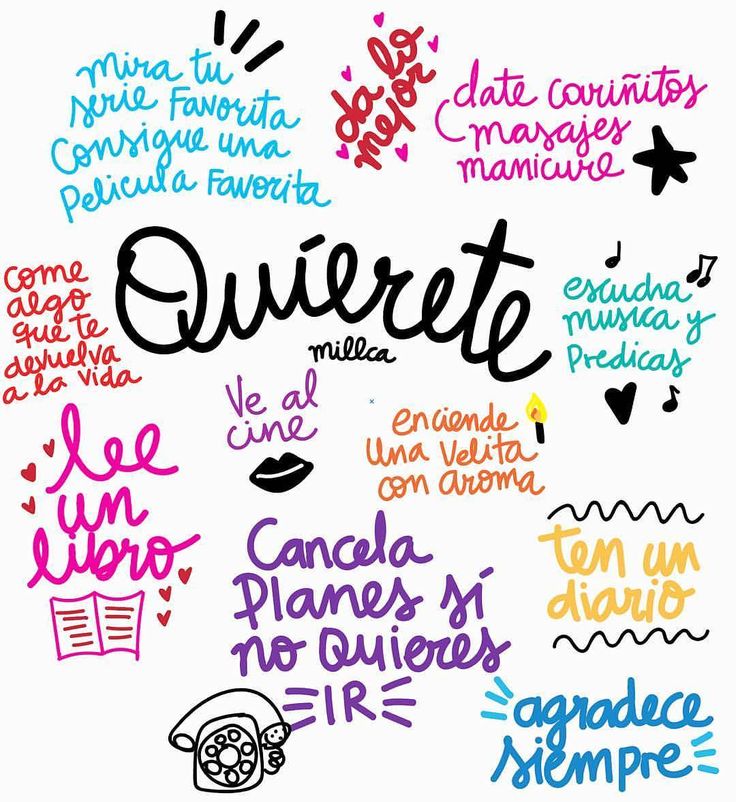 mira tu
serie Favorita
Consigue una
Pelicula Favorita
da lo
mejor
date cariñitos
masajes
manicure
Quíerete
millca
come
algo
que te
devuelva
a la vida
escucha
musica y
Predicas
Ve al
cine
enciende
una velita
con aroma
lee
un
libro
Cancela
Planes sí
no quieres
IR
ten un
diario
agradece
siempre